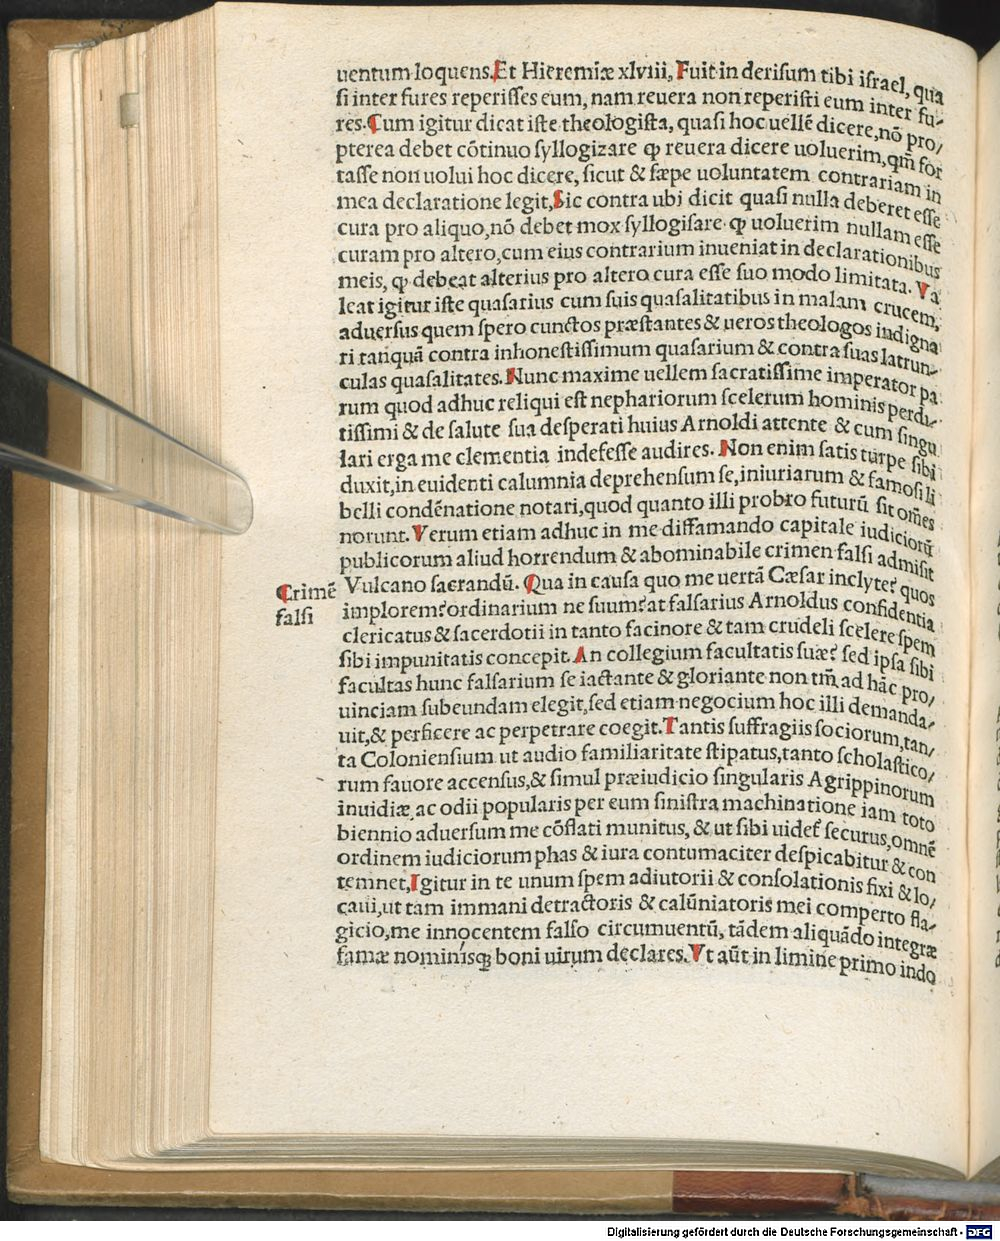 uentum loquens. Et Hieremiæ xlviii, Fuit in derisum tibi israel, qua
si inter fures reperisses eum, nam reuera non reperisti eum inter fu-
res. Cum igitur dicat iste theologista, quasi hoc uellē dicere, nō pro/
pterea debet cōtinuo syllogizare ꝙ reuera dicere uoluerim, qm̄ for
tasse non uolui hoc dicere, sicut & sæpe uoluntatem contrariam in
mea declaratione legit, Sic contra ubi dicit quasi nulla deberet esse
cura pro aliquo, nō debet mox syllogisare ꝙ uoluerim nullam esse
curam pro altero, cum eius contrarium inueniat in declarationibus
meis, ꝙ debeat alterius pro altero cura esse suo modo limitata. Va
leat igitur iste quasarius cum suis quasalitatibus in malam crucem,
aduersus quem spero cunctos præstantes & ueros theologos indigna
ri tanquā contra inhonestissimum quasarium & contra suas latrun-
culas quasalitates. Nunc maxime uellem sacratissime imperator pa
rum quod adhuc reliqui est nephariorum scelerum hominis perdi-
tissimi & de salute sua desperati huius Arnoldi attente & cum singu
lari erga me clementia indefesse audires. Non enim satis turpe sibi
duxit, in euidenti calumnia deprehensum se, iniuriarum & famosi li
belli condēnatione notari, quod quanto illi probro futurū sit om̄es
norunt. Verum etiam adhuc in me diffamando capitale iudiciorū
publicorum aliud horrendum & abominabile crimen falsi admisit
Crimē
falsi
Vulcano sacrandū. Qua in causa quo me uertā Cæsar inclyte? quos
implorem? ordinarium ne suum? at falsarius Arnoldus confidentia
clericatus & sacerdotii in tanto facinore & tam crudeli scelere spem
sibi impunitatis concepit. An collegium facultatis suæ? sed ipsa sibi
facultas hunc falsarium se iactante & gloriante non tm̄ ad hāc pro/
uinciam subeundam elegit, sed etiam negocium hoc illi demanda-
uit, & perficere ac perpetrare coegit. Tantis suffragiis sociorum, tan/
ta Coloniensium ut audio familiaritate stipatus, tanto scholastico/
rum fauore accensus, & simul præiudicio singularis Agrippinorum
inuidiæ, ac odii popularis per eum sinistra machinatione iam toto
biennio aduersum me cōflati munitus, & ut sibi uidet̄ securus, omnē
ordinem iudiciorum phas & iura contumaciter despicabitur & con
temnet, Igitur in te unum spem adiutorii & consolationis fixi & lo/
caui, ut tam immani detractoris & calūniatoris mei comperto fla-
gicio, me innocentem falso circumuentū, tādem aliquādo integræ
famæ nominisꝗ boni uirum declares. Vt aūt in limine primo indo
Digitalisierung gefördert durch die Deutsche Forschungsgemeinschaft - DFG